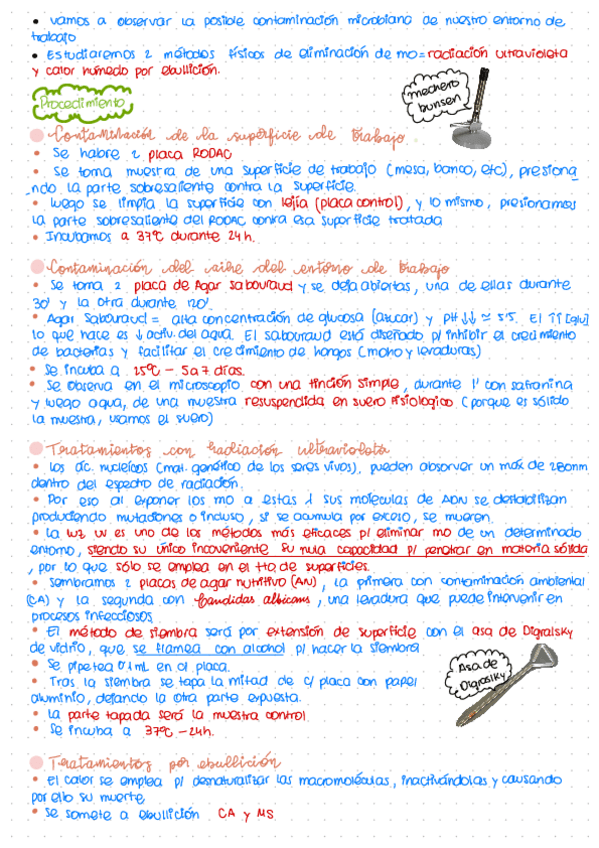 • Vamos a observar la posible contaminación microbiana de nuestro entorno de
trabajo
• Estudiaremos 2 métodos físicos de eliminación de mo = radiación ultravioleta
y calor húmedo por ebullición.
Procedimiento
mechero
bunsen
Contaminación de la superficie de trabajo
• Se habre 2 placa RODAC
• Se toma muestra de una superficie de trabajo (mesa, banco, etc), presiona
_ndo la parte sobresaliente contra la superficie.
• Luego se limpia la superficie con lejía (placa control), y lo mismo, presionamos
la parte sobresaliente del RODAC contra esa superficie tratada
• Incubamos a 37ºC durante 24h.
Contaminación del aire del entorno de trabajo
• Se toma 2 placa de Agar Sabouraud y se deja abiertas, una de ellas durante
30' y la otra durante 120'.
• Agar Sabouraud = alta concentración de glucosa (azucar) y pH ↓↓ ≈ 5'5. El ↑[glu]
lo que hace es ↓ activ. del agua. El sabouraud está diseñado p/ inhibir el crecimiento
de bacterias y facilitar el crecimiento de hongos (moho y levaduras)
• Se incuba a 25ºC - 5 a 7 días.
• Se observa en el microscopio con una tinción simple, durante 1' con safranina
y luego agua, de una muestra resuspendida en suero fisiologico (porque es sólido
la muestra, usamos el suero)
Tratamientos con radiación ultravioleta
• Los ác. nucleicos (mat. genético de los seres vivos), pueden absorver un máx de 280nm
dentro del espectro de radiación.
• Por eso al exponer los mo a estas λ sus moleculas de ADN se destabilizan
produciendo mutaciones o incluso, si se acumula por exceso, se mueren.
• La luz uv es uno de los métodos más eficaces p/ eliminar mo de un determinado
entorno, siendo su único incoveniente su nula capacidad p/ penetrar en materia sólida
, por lo que sólo se emplea en el tto de superficies.
• Sembramos 2 placas de agar nutritivo (AN), la primera con contaminación ambiental
(CA) y la segunda con Candidas albicans, una levadura que puede intervenir en
procesos infecciosos
• El método de siembra será por extensión de superficie con el asa de Digralsky
de vidrio, que se flamea con alcohol p/ hacer la siembra
• Se pipetea 0'1 mL en c/ placa.
• Tras la siembra se tapa la mitad de c/ placa con papel
aluminio, dejando la otra parte expuesta.
• La parte tapada será la muestra control
• Se incuba a 37ºC - 24h.
Asa de
Digrasky
Tratamientos por ebullición
• El calor se emplea p/ desnaturalizar las macromoléculas, inactivándolas y causando
por ello su muerte
• Se somete a ebullición CA y MS